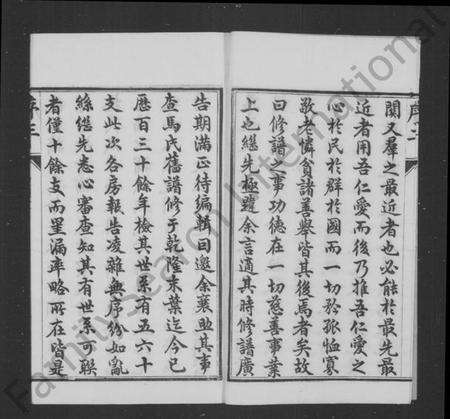 閱又羣之最近者也必能於最先最
近者用吾仁愛而後乃推吾仁愛之
心於民於群於國而一切矜孤恤寡
敬老憐貧諸善舉皆其後焉者矣故
曰修譜之事功德在一切慈善事業
上也繼先極韙余言適其時修譜廣
告期滿正待編輯曰邀余襄助其事
查馬氏舊譜修于乾隆末葉迄今已
歷百三十餘年檢其世系有五六十
支此次各房報告凌雜無序紛如亂
絲繼先悉心審查知其有世系可聯
者僅十餘支而星漏率略所在皆是
序三
FamilySearch International